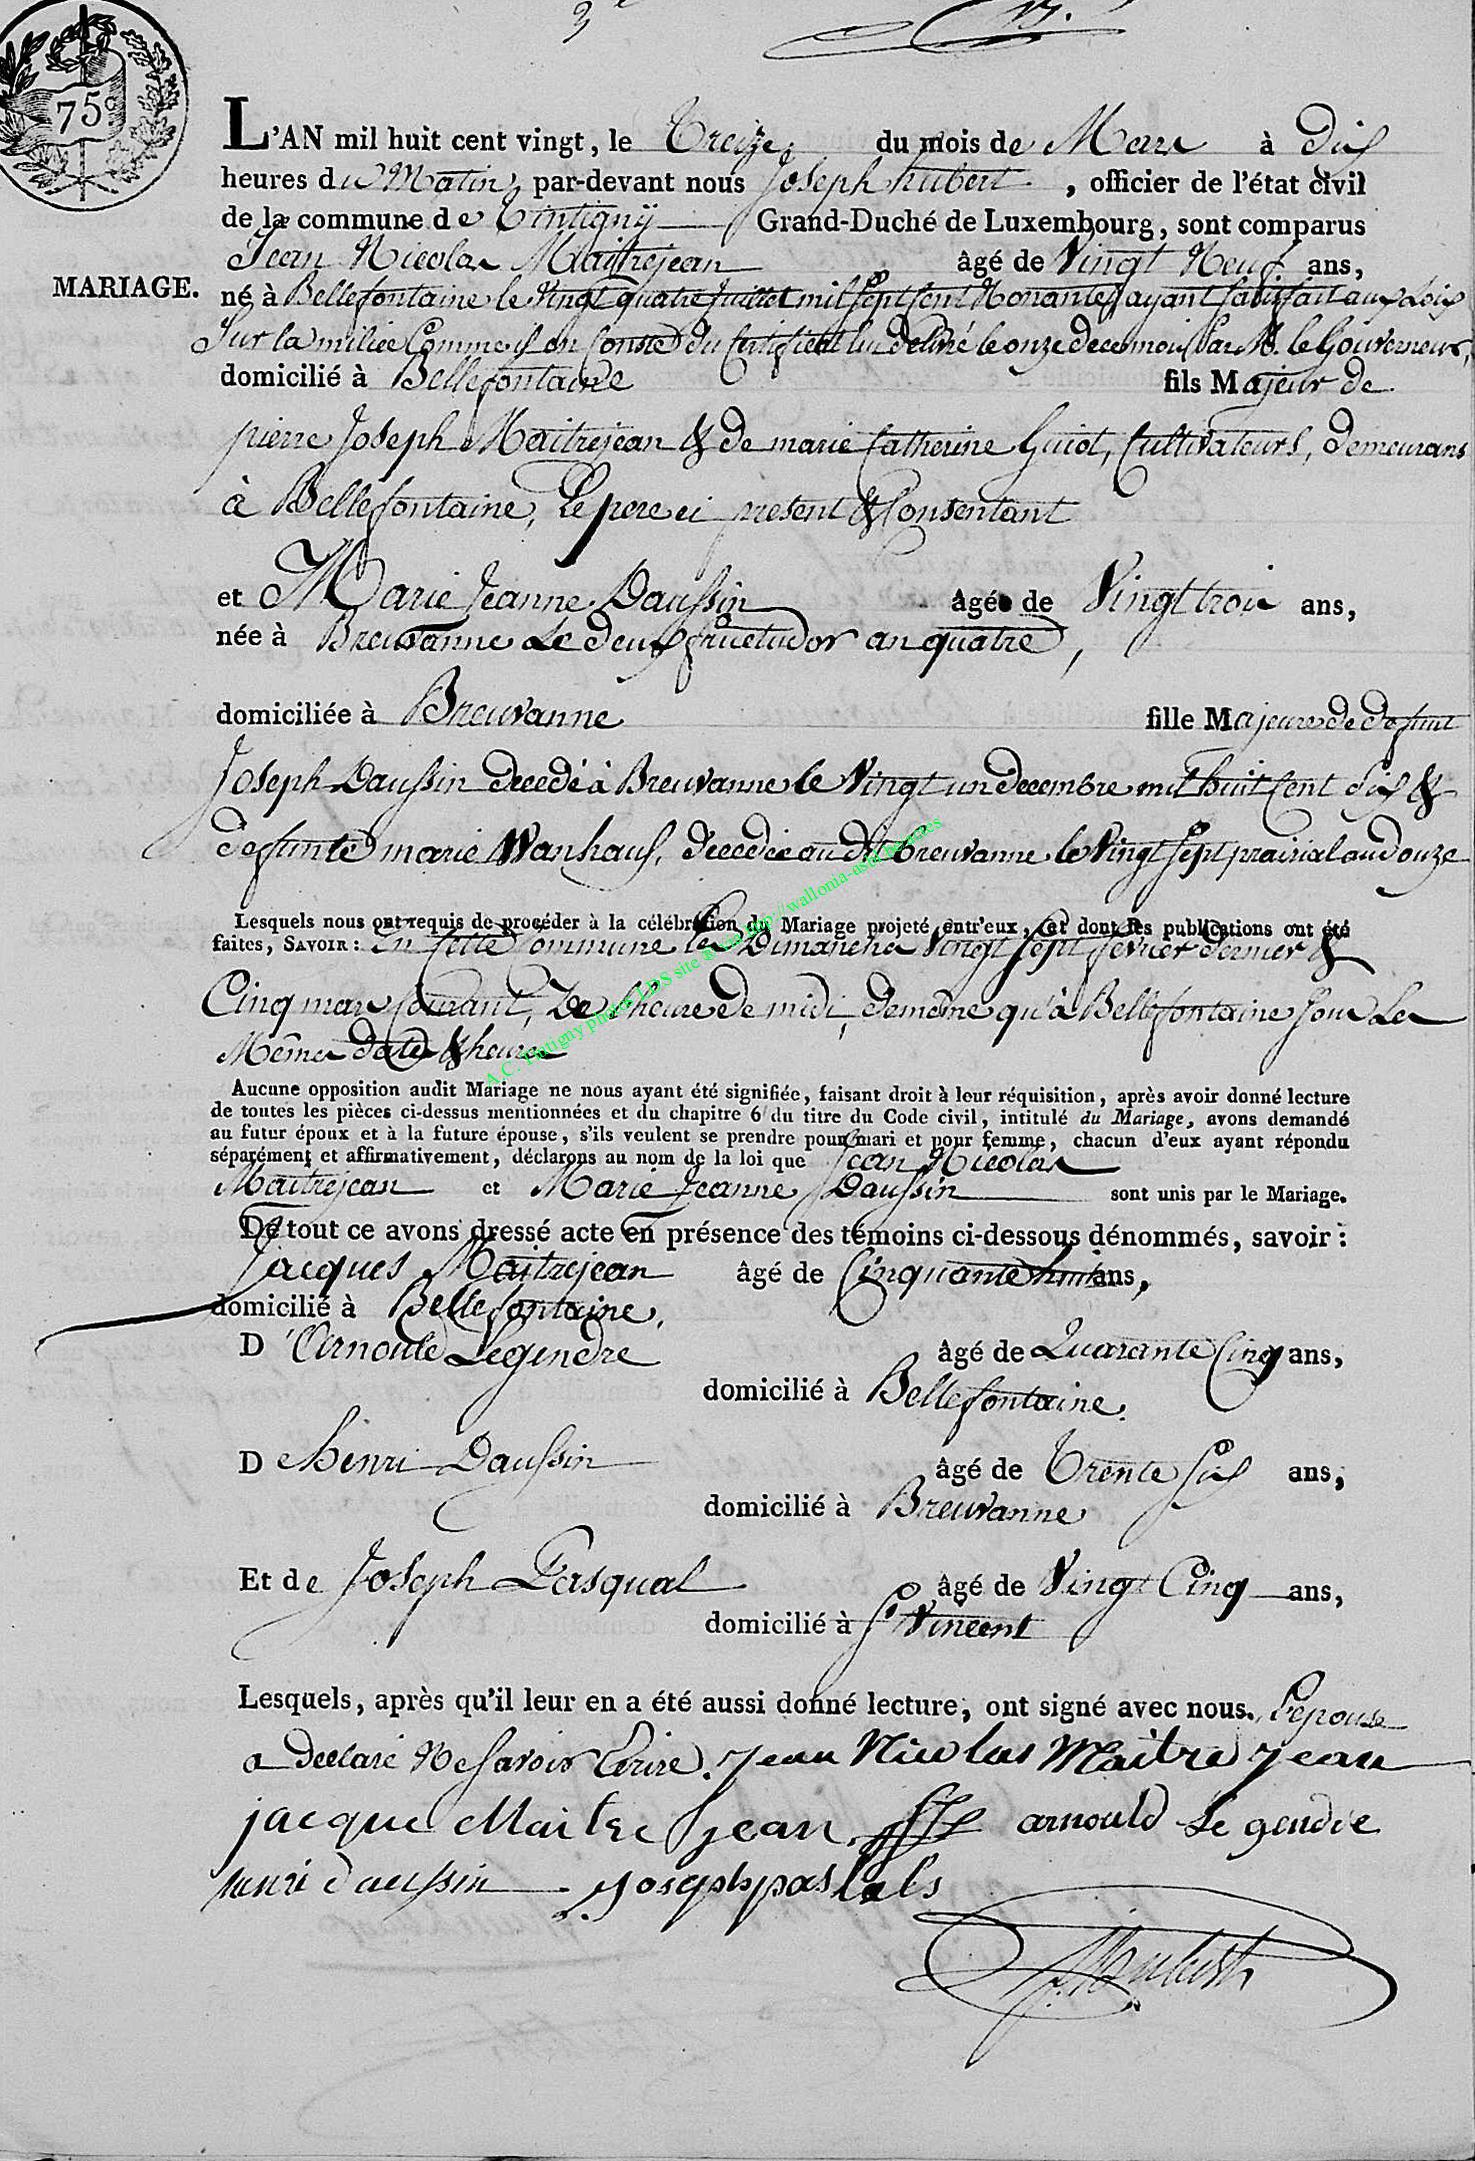 75c
L'AN mil huit cent vingt, le Treize du mois de Mars à dix
heures du Matin, par-devant nous Joseph hubert, officier de l'état civil
de la commune de Tintignÿ Grand-Duché de Luxembourg, sont comparus
Jean Nicolas Maitrejean âgé de Vingt Neuf ans,
MARIAGE.
né à Bellefontaine le Vingt quatre Juillet mil sept cent Nonante, ayant satisfait aux Loix
Sur la milice Comme il en Conste du Certificat lui délivré le onze de ce mois Par M. le Gouverneur,
domicilié à Bellefontaine fils Majeur de
pierre Joseph Maitrejean & de marie Catherine Guiot, Cultivateurs, demeurans
à Bellefontaine, Le pere ci present & Consentant
et Marie Jeanne Daussin âgée de Vingt trois ans,
née à Breuvanne Le deux fructudor an quatre,
domiciliée à Breuvanne fille Majeure de defunt
Joseph Daussin decedé à Breuvanne le Vingt un decembre mil huit Cent dix &
defunte marie Wanhauf, decedée au dit Breuvanne le Vingt sept prairial an douze
Lesquels nous ont requis de procéder à la célébration du Mariage projeté entr'eux, et dont les publications ont été
faites, SAVOIR: En Cette Commune les Dimanches Vingt sept fevrier dernier &
Cinq mars Courant, De l'heure de midi, de même qu'à Bellefontaine sous Les
Mêmes dates & heures
Aucune opposition audit Mariage ne nous ayant été signifiée, faisant droit à leur réquisition, après avoir donné lecture
de toutes les pièces ci-dessus mentionnées et du chapitre 6 du titre du Code civil, intitulé du Mariage, avons demandé
au futur époux et à la future épouse, s'ils veulent se prendre pour mari et pour femme, chacun d'eux ayant répondu
séparément et affirmativement, déclarons au nom de la loi que Jean Nicolas
Maitrejean et Marie Jeanne Daussin sont unis par le Mariage.
De tout ce avons dressé acte en présence des témoins ci-dessous dénommés, savoir:
Jacques Maitrejean âgé de Cinquante huit ans,
domicilié à Bellefontaine.
D'Arnould Legendre âgé de Quarante Cinq ans,
domicilié à Bellefontaine.
De henri Daussin âgé de Trente six ans,
domicilié à Breuvanne
Et de Joseph Pasqual âgé de Vingt Cinq ans,
domicilié à St Vincent
Lesquels, après qu'il leur en a été aussi donné lecture, ont signé avec nous. L'epouse
a declaré Ne savoir Ecrire. Jean Nicolas Maitre jean
jacque Maitre jean arnould Le gendre
henri daussin joseph paskals
J. hubert
A.C. Tintigny photos LDS site ® via http://wallonia-asbl.be/actes